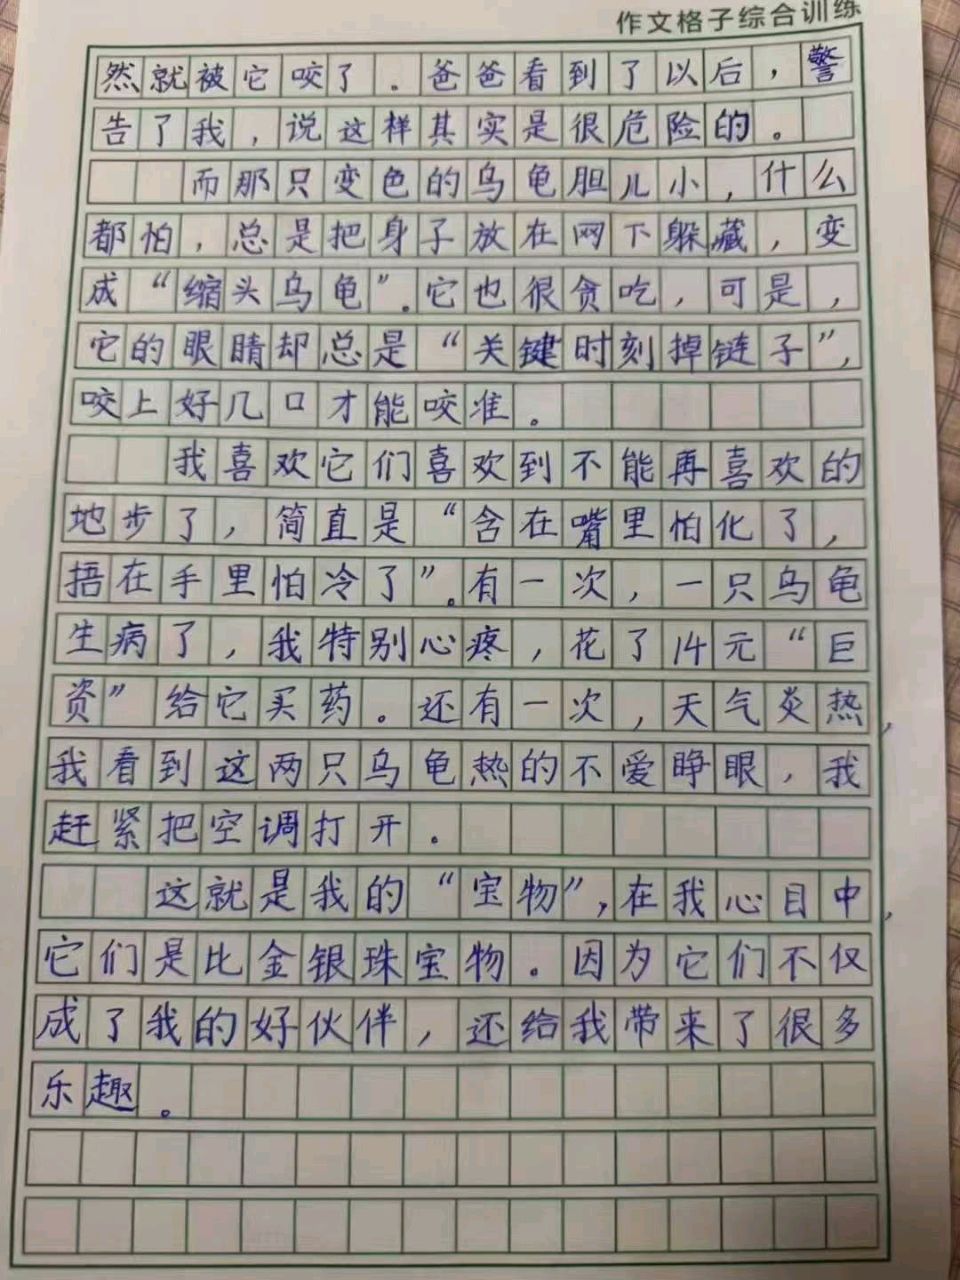 作文格子综合训练
然就被它咬了。爸爸看到了以后，警
告了我，说这样其实是很危险的。
而那只变色的乌龟胆儿小，什么
都怕，总是把身子放在网下躲藏，变
成“缩头乌龟”。它也很贪吃，可是，
它的眼睛却总是“关键时刻掉链子”，
咬上好几口才能咬准。
我喜欢它们喜欢到不能再喜欢的
地步了，简直是“含在嘴里怕化了，
捂在手里怕冷了”。有一次，一只乌龟
生病了，我特别心疼，花了14元“巨
资”给它买药。还有一次，天气炎热，
我看到这两只乌龟热的不爱睁眼，我
赶紧把空调打开。
这就是我的“宝物”，在我心目中，
它们是比金银珠宝物。因为它们不仅
成了我的好伙伴，还给我带来了很多
乐趣。